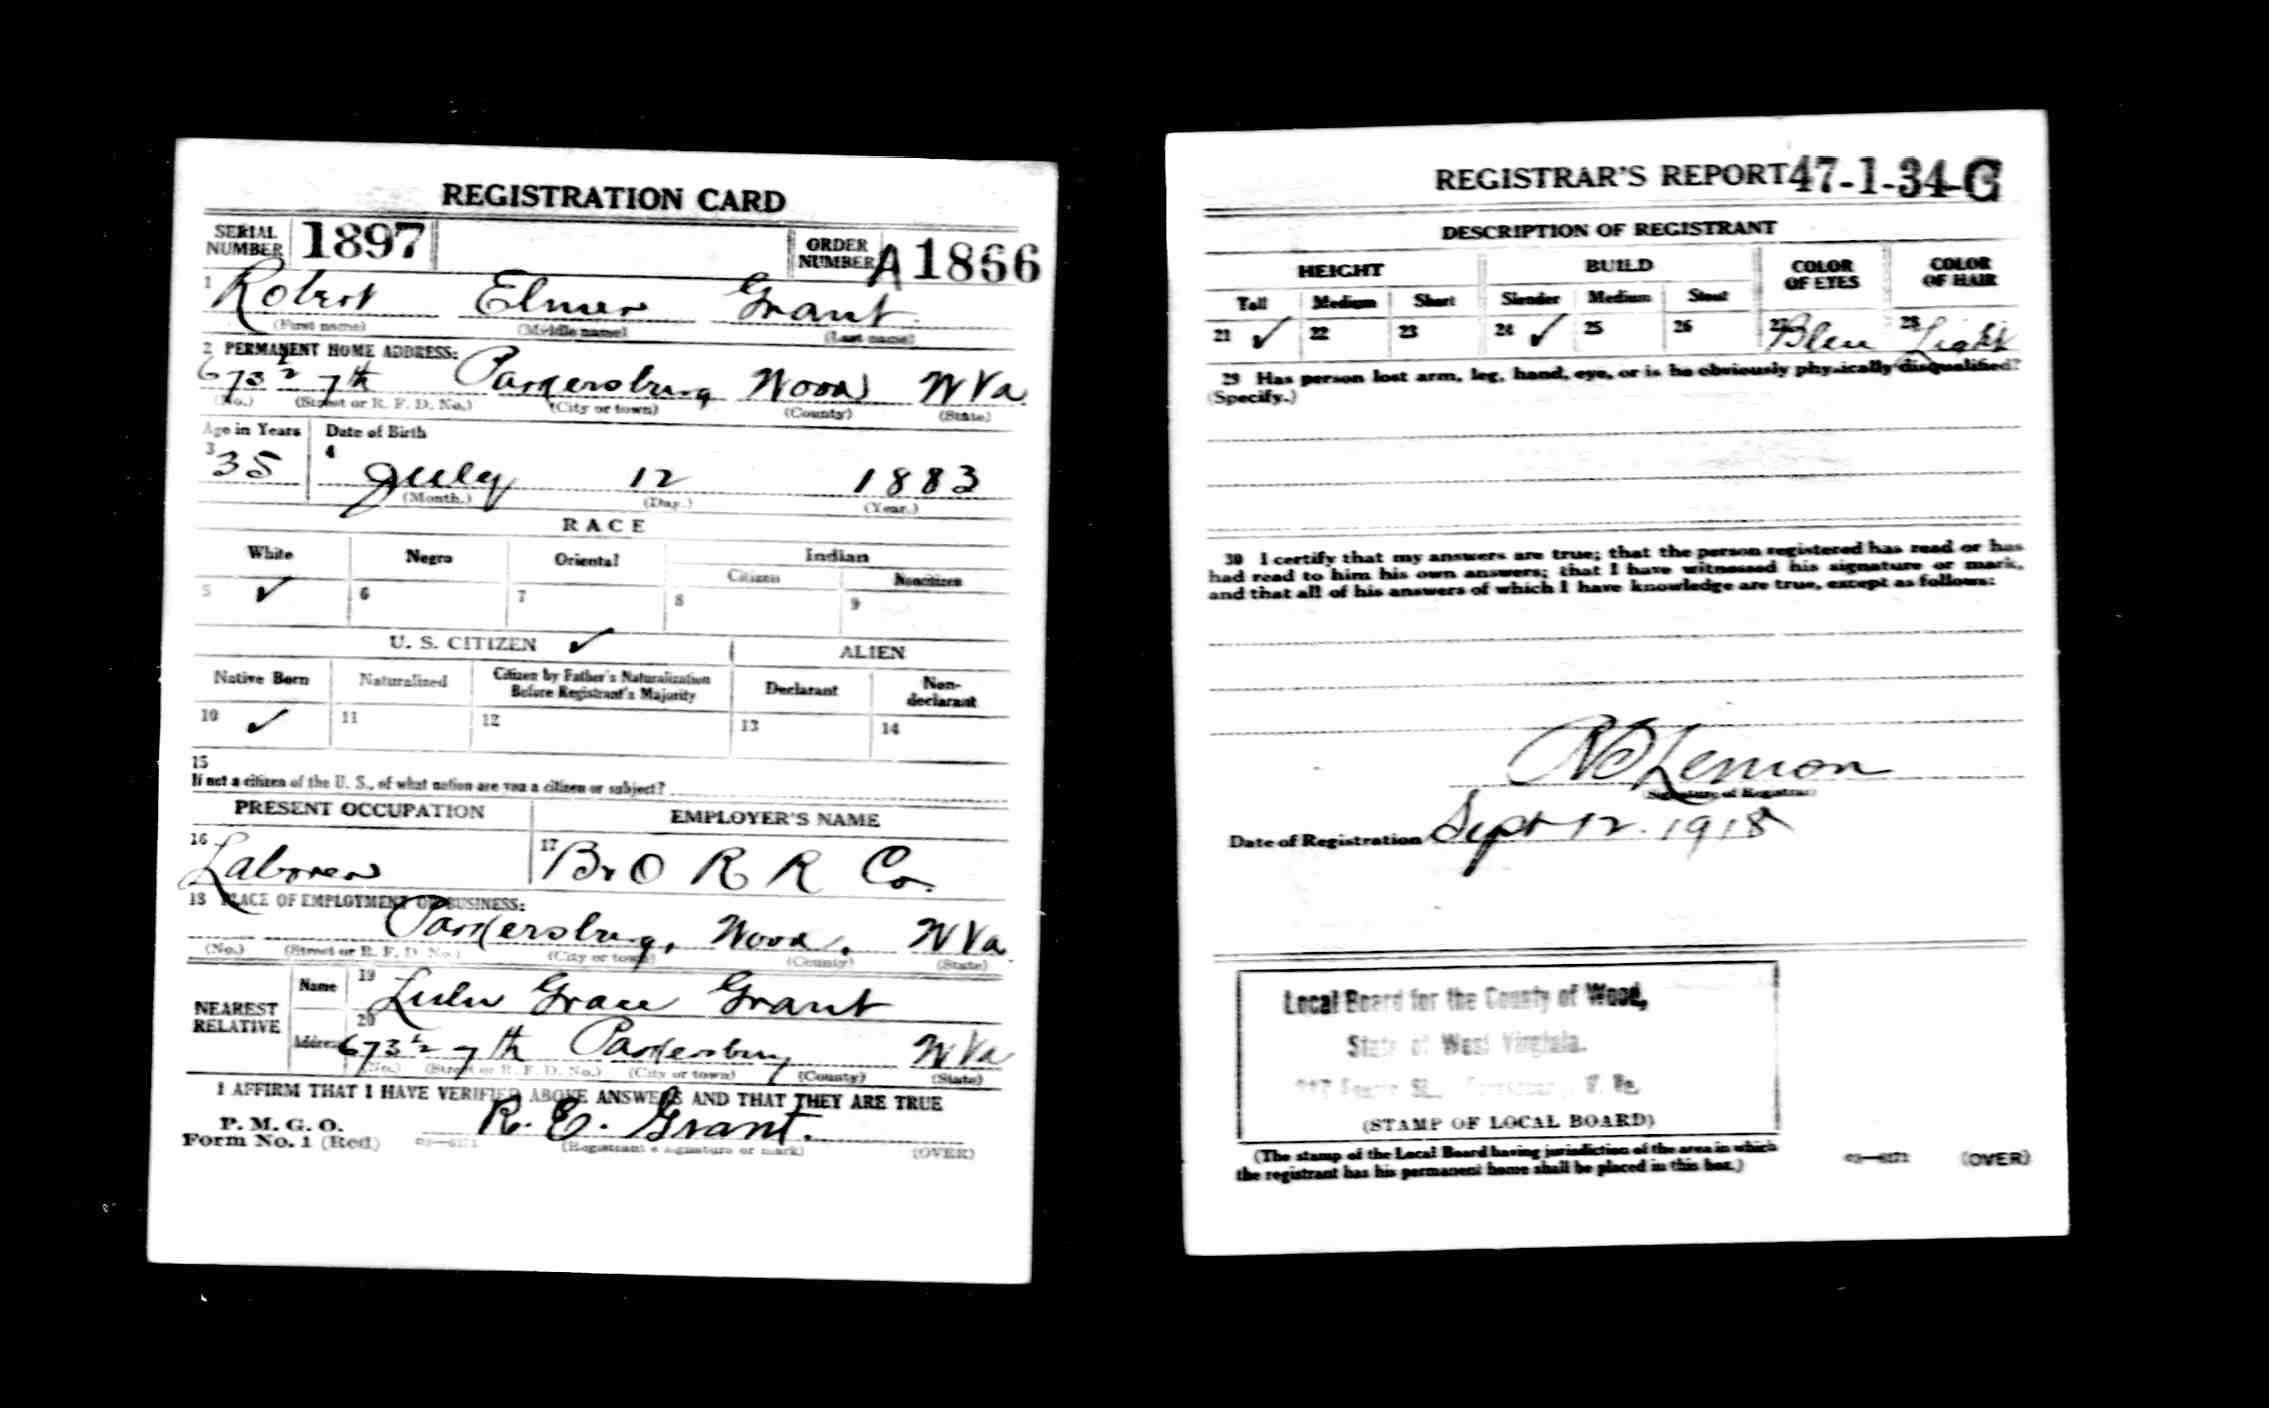 REGISTRATION CARD
SERIAL NUMBER 1897 ORDER NUMBER A1866
1 Robert Elmer Grant
(First name) (Middle name) (Last name)
2 PERMANENT HOME ADDRESS:
673 1/2 7th Parkersburg Wood W Va
(No.) (Street or R. F. D. No.) (City or town) (County) (State)
Age in Years Date of Birth
3 35 4 July 12 1883
(Month.) (Day.) (Year.)
RACE
White Negro Oriental Indian
Citizen Noncitizen
5 ✓ 6 7 8 9
U. S. CITIZEN ✓ ALIEN
Native Born Naturalized Citizen by Father's Naturalization Before Registrant's Majority Declarant Non-declarant
10 ✓ 11 12 13 14
15
If not a citizen of the U. S., of what nation are you a citizen or subject?
PRESENT OCCUPATION EMPLOYER'S NAME
16 Laborer 17 B & O R R Co.
18 PLACE OF EMPLOYMENT OR BUSINESS:
Parkersburg, Wood, W Va
(No.) (Street or R. F. D. No.) (City or town) (County) (State)
NEAREST RELATIVE
Name 19 Lulu Grace Grant
Address 20 673 1/2 7th Parkersburg W Va
(No.) (Street or R. F. D. No.) (City or town) (County) (State)
I AFFIRM THAT I HAVE VERIFIED ABOVE ANSWERS AND THAT THEY ARE TRUE
P. M. G. O.
Form No. 1 (Red) R. E. Grant.
(Registrant's signature or mark) (OVER)
REGISTRAR'S REPORT 47-1-34-G
DESCRIPTION OF REGISTRANT
HEIGHT BUILD COLOR OF EYES COLOR OF HAIR
Tall Medium Short Slender Medium Stout
21 ✓ 22 23 24 ✓ 25 26 27 Blue 28 Light
29 Has person lost arm, leg, hand, eye, or is he obviously physically disqualified?
(Specify.)
30 I certify that my answers are true; that the person registered has read or has
had read to him his own answers; that I have witnessed his signature or mark,
and that all of his answers of which I have knowledge are true, except as follows:
Lemon
(Signature of Registrar)
Date of Registration Sept 12. 1918
Local Board for the County of Wood,
State of West Virginia.
St., W. Va.
(STAMP OF LOCAL BOARD)
(The stamp of the Local Board having jurisdiction of the area in which
the registrant has his permanent home shall be placed in this box.)
03—6171 (OVER)